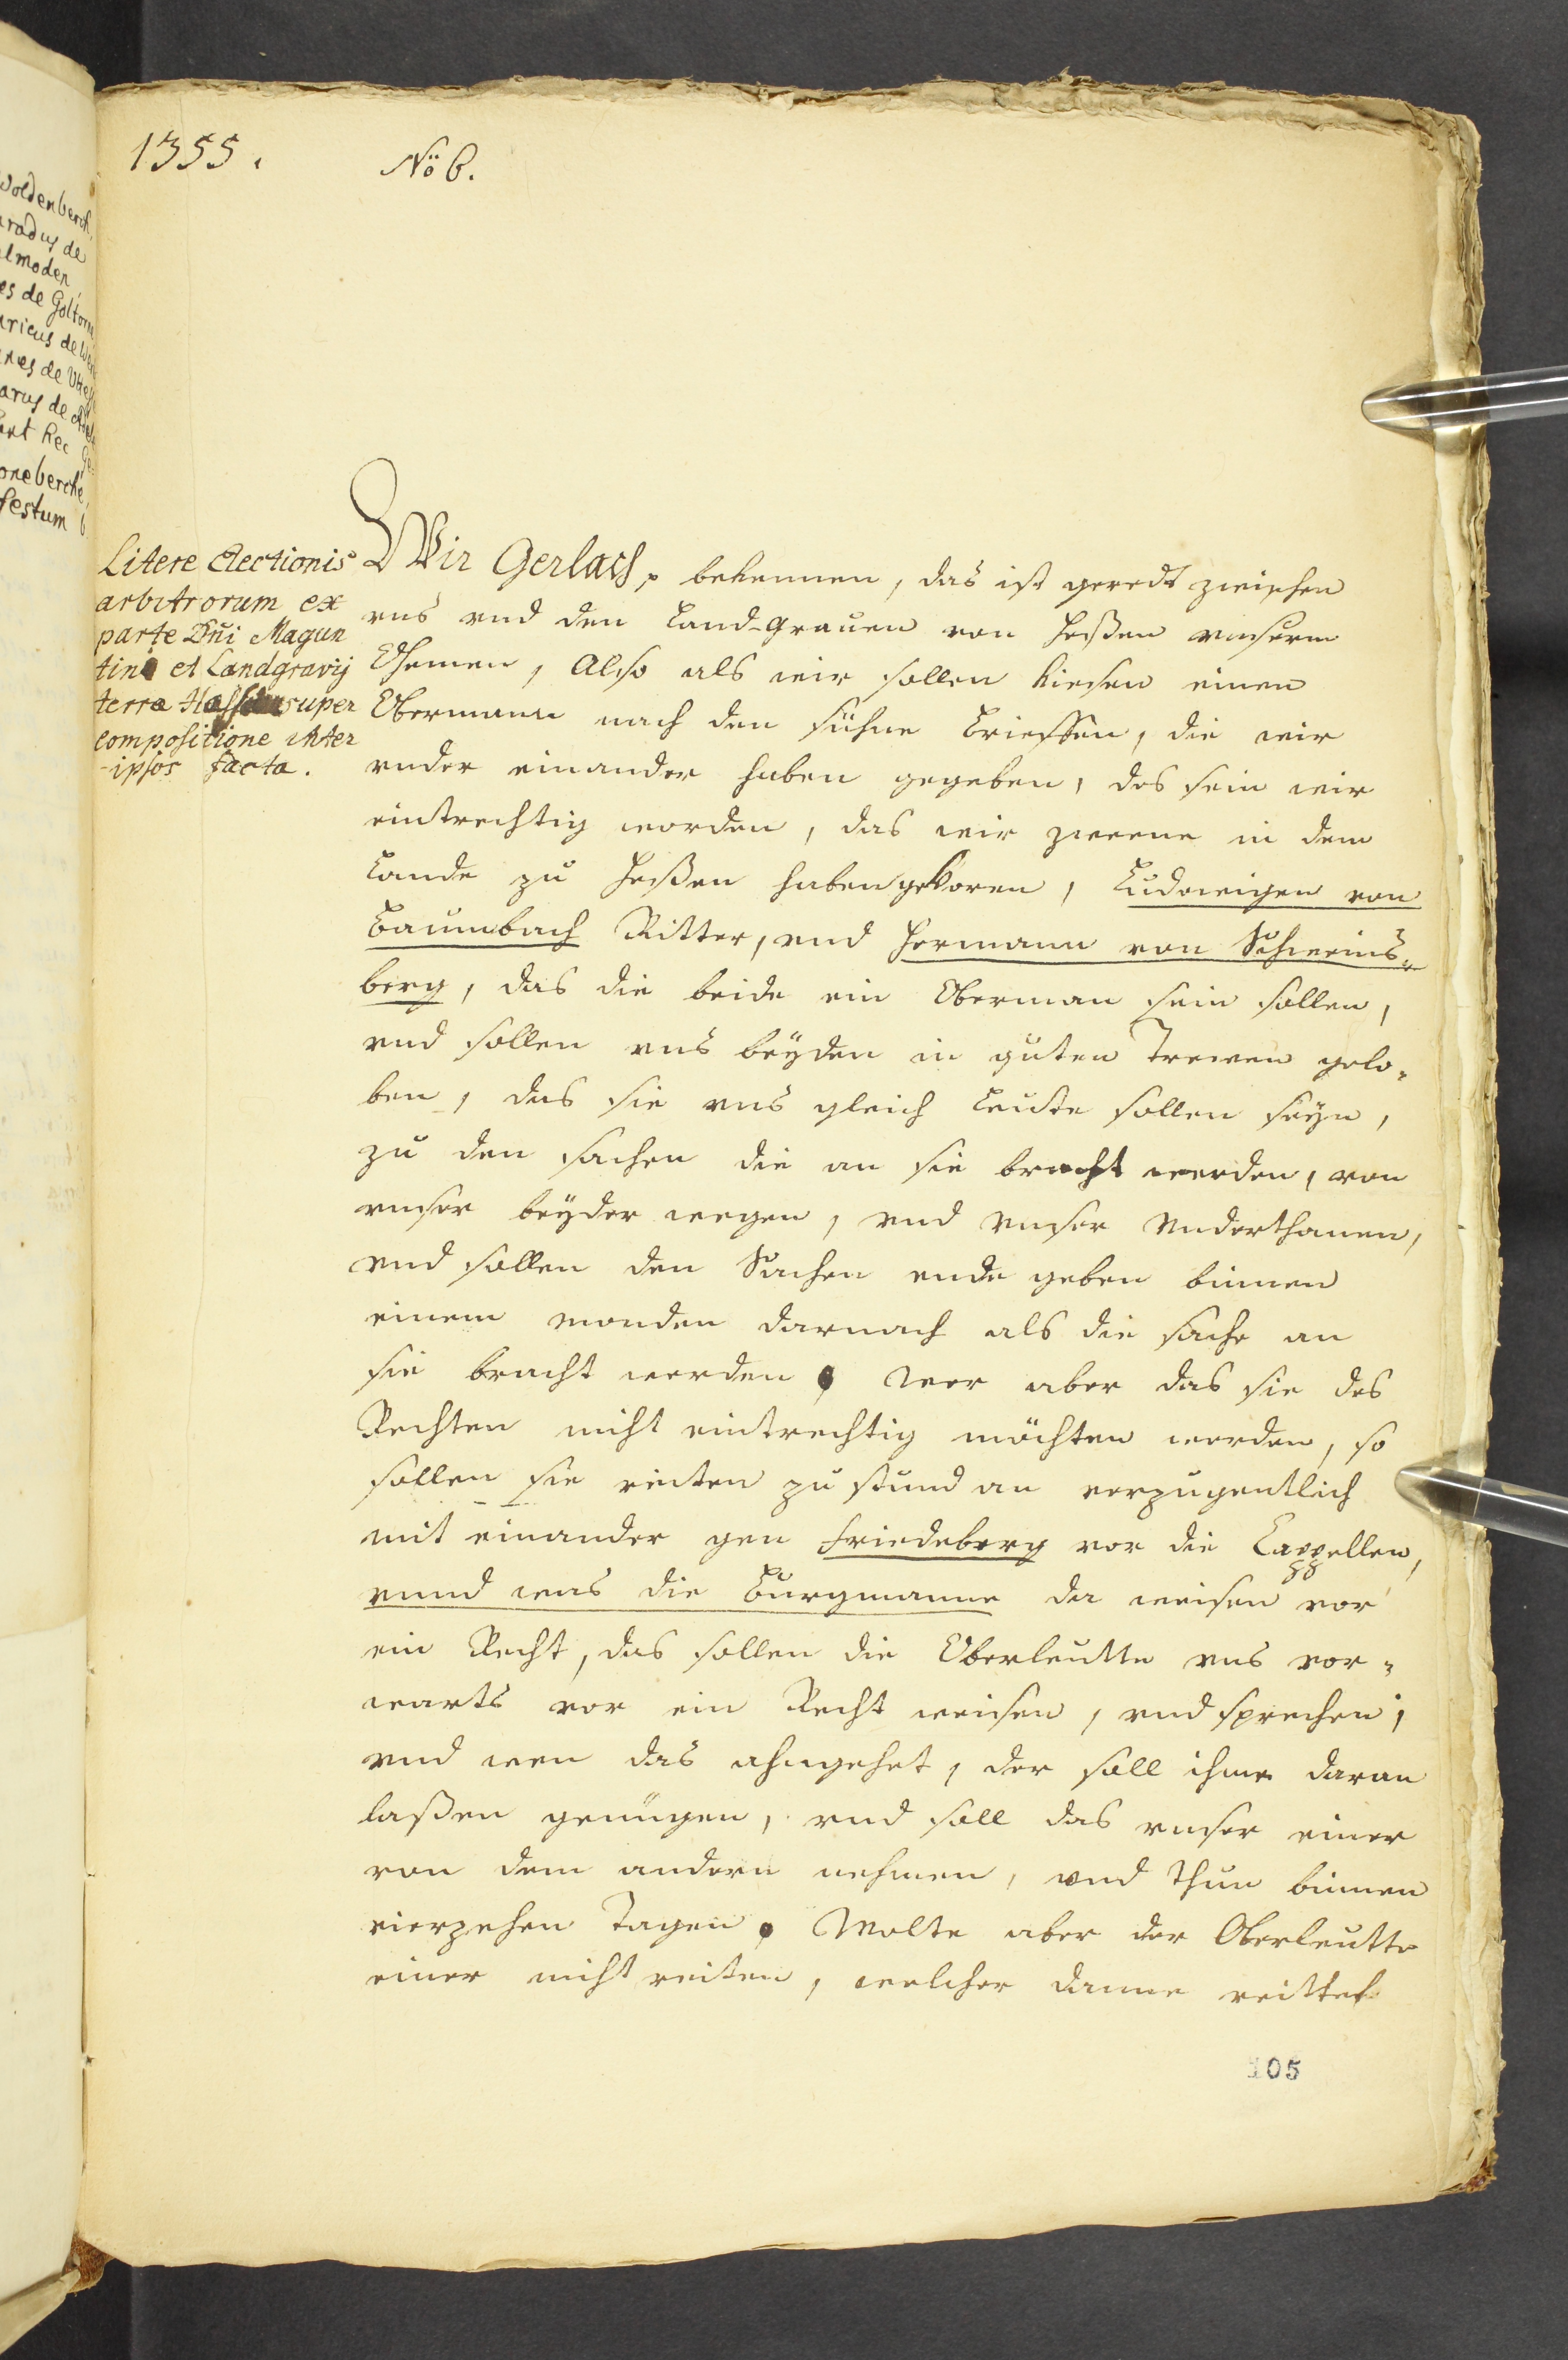 1355.
No 6.
Litere Electionis
arbitrorum ex
parte Dni Magun
tini et Landgravij
terræ Hassiæ super
compositione inter
ipsos facta.
Wir Gerlach, bekennen, das ist geredt zwischen
vns vnd den Land-Grauen von Heßen vnserm
Ohemen, Also als wir sollen kiesen einen
Obermann nach den sühne brieffen, die wir
vnder einander haben gegeben, des sein wir
eintrechtig worden, das wir zweene in dem
Lande zu Heßen haben gekoren, Ludewigen von
Baumbach Ritter, vnd Hermann von Schweins-
berg, das die beide ein Oberman sein sollen,
vnd sollen vns beyden in guten Trewen gelo-
ben, das sie vns gleich Leudte sollen seyn,
zu den sachen die an sie bracht werden, von
vnser beyder wegen, vnd vnser Vnderthanen,
vnd sollen den Sachen ende geben binnen
einem monden darnach als die sache an
sie bracht werden. Wer aber das sie des
Rechten nicht eintrechtig möchten werden, so
sollen sie reiten zu stund an verzugentlich
mit einander gen Friedeberg vor die Cappellen,
vnnd was die Burgmanne da weisen vor
ein Recht, das sollen die Oberleutte vns vor-
warts vor ein Recht weisen, vnd sprechen,
vnd wen das ahngehet, der soll ihme daran
laßen genügen, vnd soll das vnser einer
von dem andern nehmen, vnd thun binnen
vierzehen Tagen. Wolte aber der Oberleutte
einer nicht reiten, welcher danne reittet
105
Woldenberch,
radus de
lmoden,
es de Goltorn
ricus de
nes de
arus de
ant Rec
oneberche,
festum